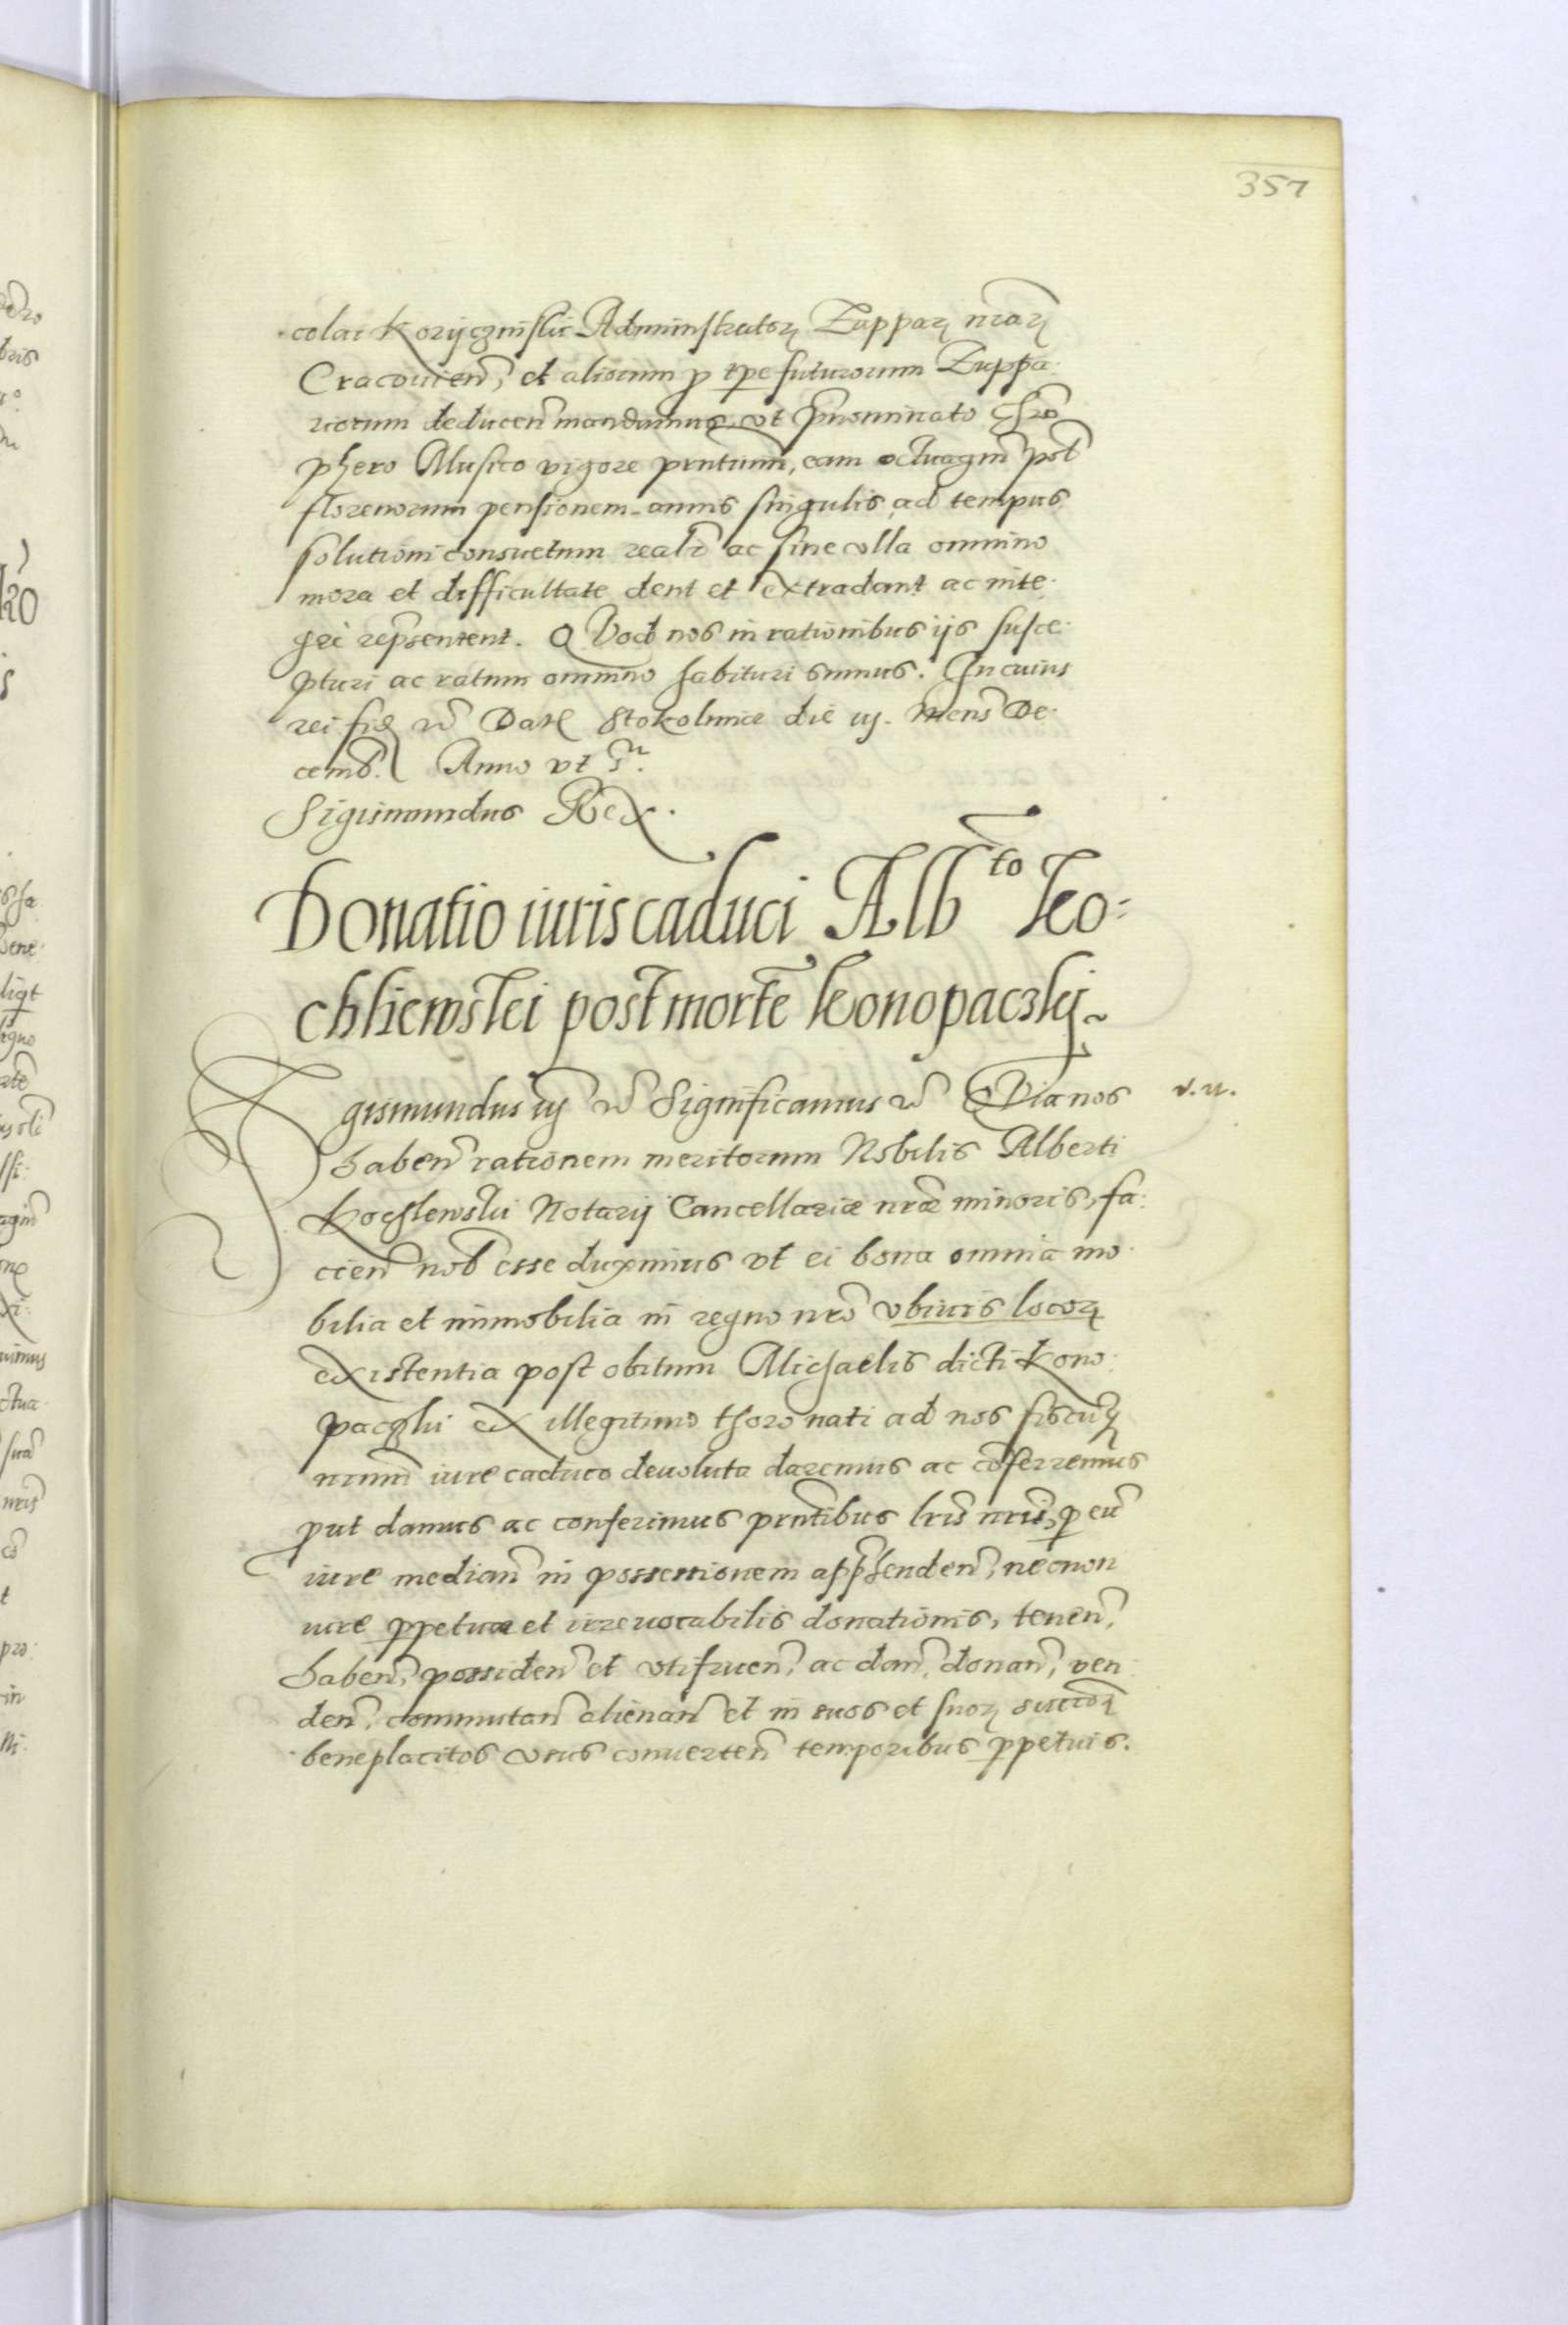 357
colai Koryczinskii Administratorꝝ Zupparꝝ nr̃arꝝ
Cracouien̄, et aliorum ꝓ tp̱e futurorum Zuppa:
riorum deducen̄ mandamus, vt p̄nominato Chr̃o
phero Musico vigore pn̄tium, eam octuagin̄
florenorum pensionem annis singulis ad tempus
solutioni consuetum realr̃ ac sine vlla omnino
mora et difficultate dent et extradant ac inte:
gre repn̄sentent. QVod nos in rationibus ijs susce:
pturi ac ratum omnino habituri sumus. In cuius
rei fid Dat Stokolmiæ die iij. Mens̄ De:
cemb. Anno vt
Sigismundus Rex.
Donatio iuris caduci Alb̃to Ko=
chliewskei post morte̅ Konopaczkij
Sigismundus iij Significamus Quia nos v. u.
haben̄ rationem meritorum Nobilis Alberti
Kochlewskii Notarij Cancellariæ nr̃æ minoris, fa:
cien̄ nob̃ esse duximus vt ei bona omnia mo:
bilia et immobilia in regno nr̃o vbiuis locorꝝ
existentia post obitum Michaelis dicti Kono:
paczkii ex illegitimo thoro nati ad nos fiscumꝗ
nr̃um iure caduco deuoluta daremus ac cōferremus
ꝓut damus ac conferimus pn̄tibus lr̃is nr̃is, ꝑ eū
iure median̄ in possessionem app̄henden̄, necnon
iure ꝑpetuæ et irreuocabilis donationis, tenen̄,
haben̄, possiden̄ et vtifruen̄, ac dan̄, donan̄, ven
den̄, commutan̄ alienan̄ et in suos et suorꝝ succ̄orꝝ
beneplacitos vsus conuerten̄ temporibus ꝑpetuis.